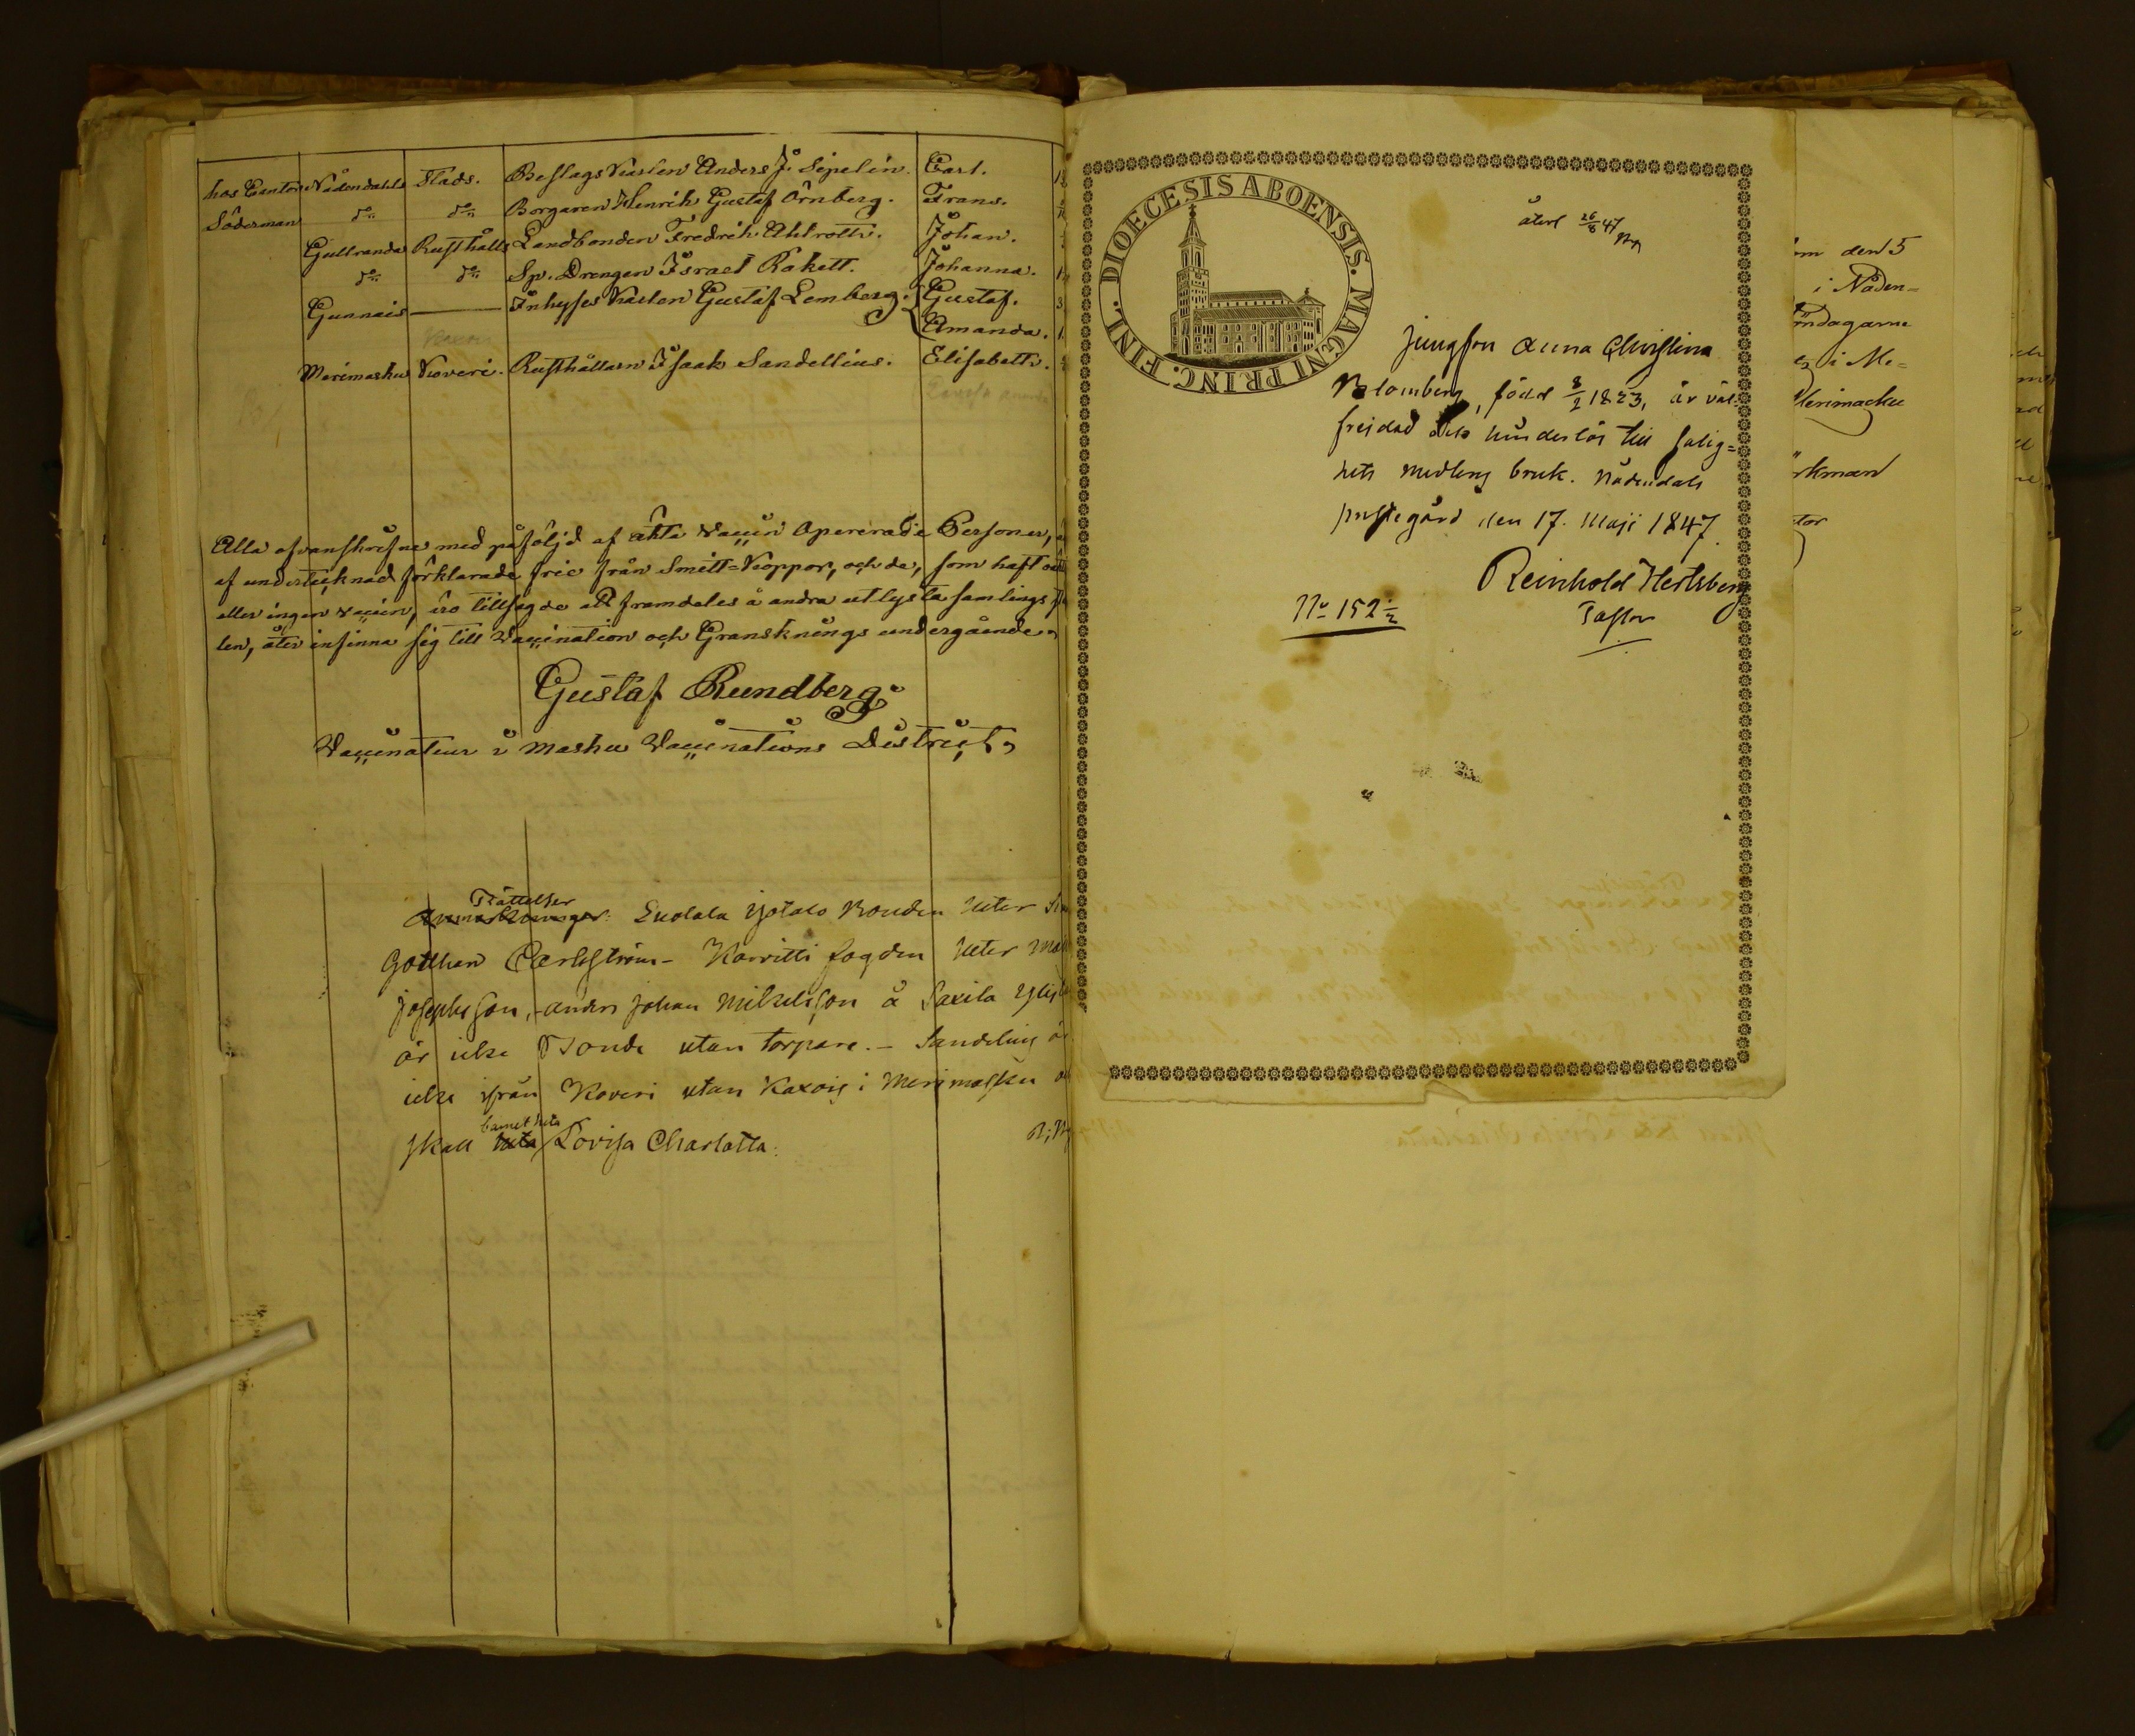 hos Cantor Nådendahls Stads. Beslags Karlen Anders J. Sipelin. Carl.
Söderman do do Borgaren Henrik Gustaf Örnberg. Frans.
Gullranda Rusthålls Landbonden Fredrik Ahlroth. Johan.
do do Sp. Drengen Israel Rakett. Johanna.
Gunnais — Inhyses Karlen Gustaf Lemberg. Gustaf. 3
Amanda. 1
Merimasku Koveri. Rusthållarn Isaak Sandellius. Elisabeth.
Alla ofvanskrefne med påföljd af äkta Vaccin Opererade Personer,
af undertecknad förklarade frie från Smitt-Koppor, och de, som haft
eller ingen vaccin, äro tillsagde att framdeles å andra utlysta samlings
len, åter infinna sig till Vaccination och Gransknings undergående.
Gustaf Rundberg.
Vaccinateur i Masku Vaccinations District.
Rättelser
Anmärkningar: Luolala Yotalo Bonden heter
Gotthan Carlström - Karvitti fogden heter
Josephsson, - anders Johan Mikelsson å Saxila
är icke Bonde utan torpare. - Sandelius är
icke ifrån Koveri utan Kaxois i Merimasku
barnet heta
skall heta Lovisa Charlotta.
DIOECESIS ABOENSIS. MAGNI PRINC. FINL.
återl 26/6 47
Jungfrun Anna Christina
Blomberg, född 8/2 1823, är väl-
frejdad och hinderlös till salig=
hets medlens bruk. Nådendals
prestegård den 17. Maji 1847.
Reinhold Hertsberg
Pastor
No 152 1/2
om den 5
i Nåden=
öndagarne
i Me=
Merimasku
rkman
tor